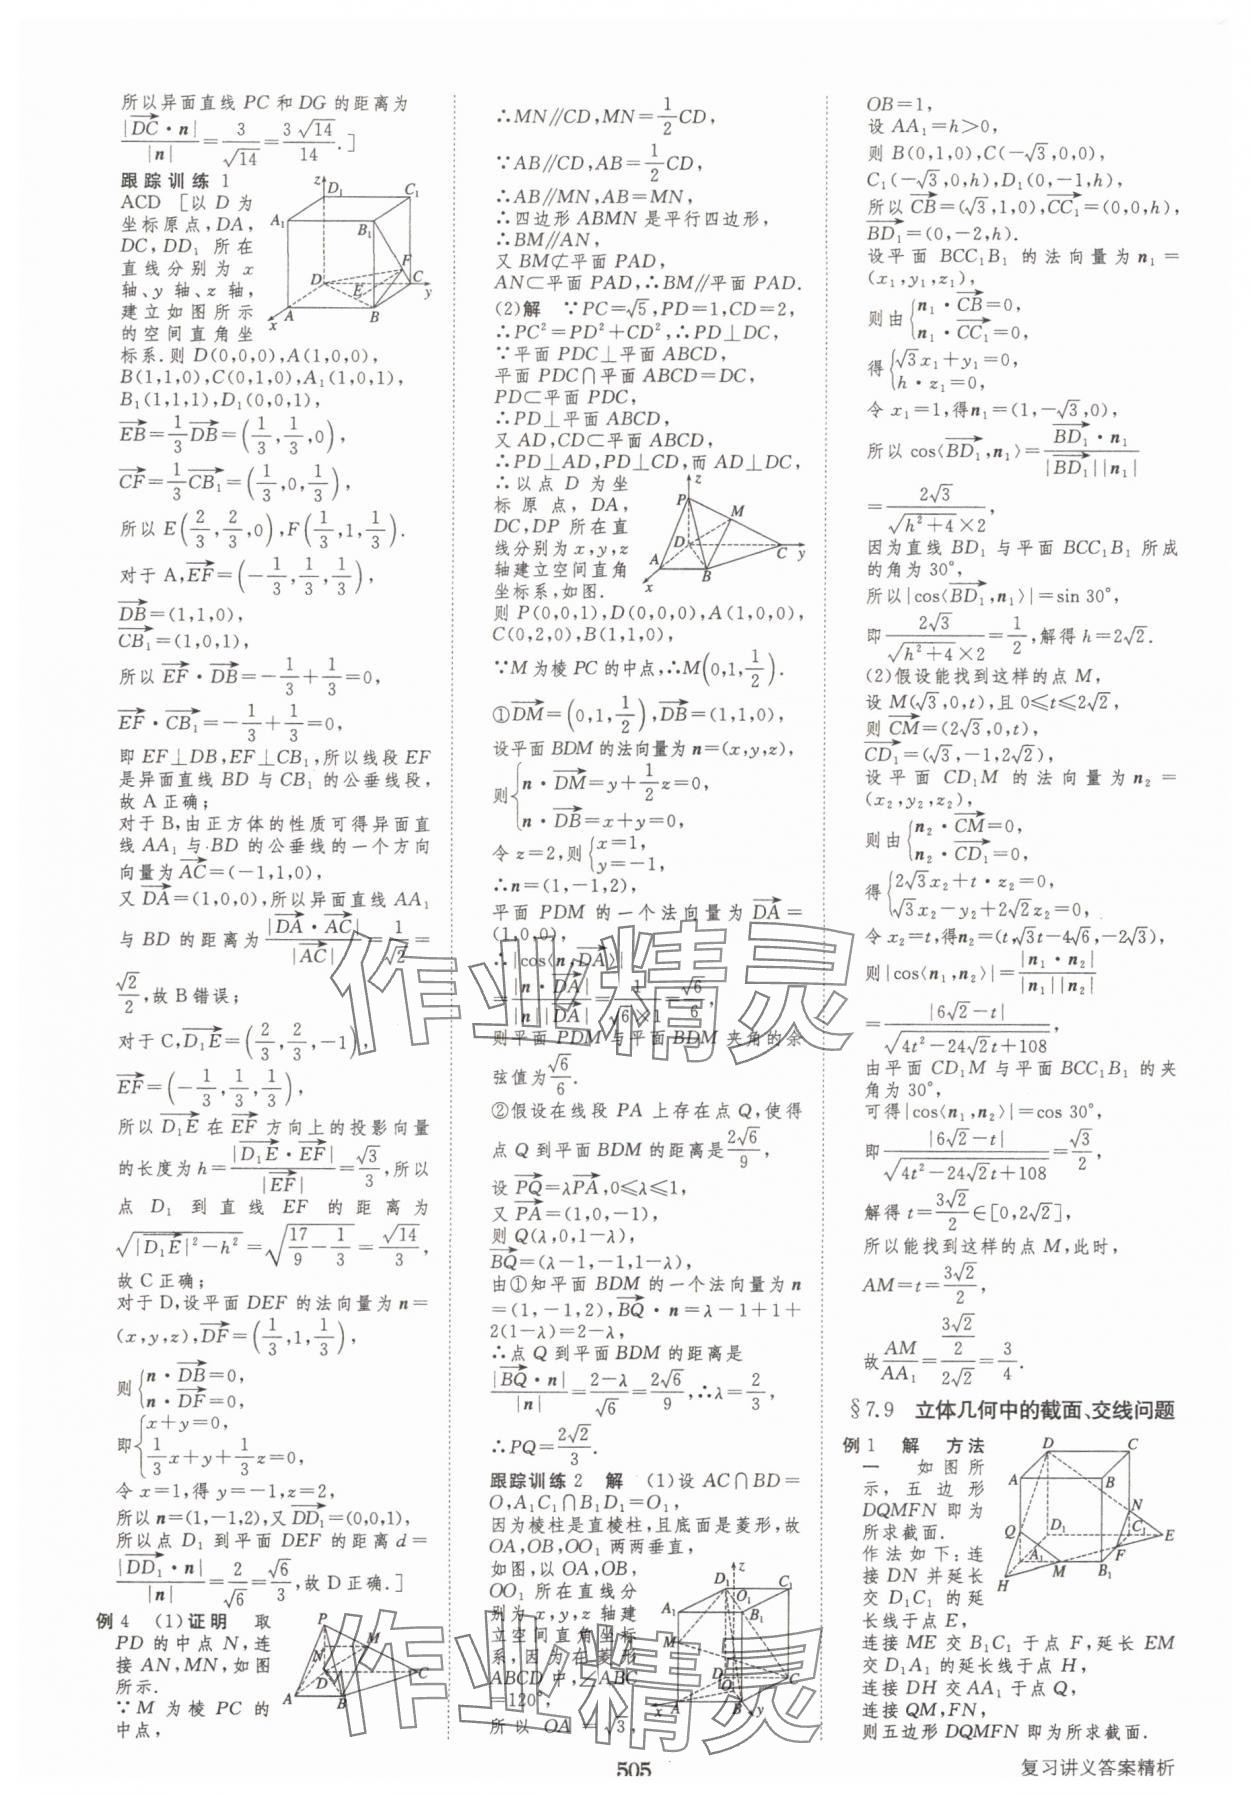 所以异面直线 PC 和 DG 的距离为
|DC·n|/|n|=3/√14=3√14/14.]
跟踪训练 1
ACD [以 D 为
坐标原点,DA,
DC,DD₁ 所在
直线分别为 x
轴、y 轴、z 轴,
建立如图所示
的空间直角坐
标系.则 D(0,0,0),A(1,0,0),
B(1,1,0),C(0,1,0),A₁(1,0,1),
B₁(1,1,1),D₁(0,0,1),
EB=1/3DB=(1/3,1/3,0),
CF=1/3CB₁=(1/3,0,1/3),
所以 E(2/3,2/3,0),F(1/3,1,1/3).
对于 A,EF=(-1/3,1/3,1/3),
DB=(1,1,0),
CB₁=(1,0,1),
所以 EF·DB=-1/3+1/3=0,
EF·CB₁=-1/3+1/3=0,
即 EF⊥DB,EF⊥CB₁,所以线段 EF
是异面直线 BD 与 CB₁ 的公垂线段,
故 A 正确;
对于 B,由正方体的性质可得异面直
线 AA₁ 与 BD 的公垂线的一个方向
向量为AC=(-1,1,0),
又DA=(1,0,0),所以异面直线 AA₁
与 BD 的距离为|DA·AC|/|AC|=1/√2=
√2/2,故 B 错误;
对于 C,D₁E=(2/3,2/3,-1),
EF=(-1/3,1/3,1/3),
所以 D₁E 在 EF 方向上的投影向量
的长度为 h=|D₁E·EF|/|EF|=√3/3,所以
点 D₁ 到直线 EF 的距离为
√(|D₁E|²-h²)=√(17/9-1/3)=√14/3,
故 C 正确;
对于 D,设平面 DEF 的法向量为 n=
(x,y,z),DF=(1/3,1,1/3),
则{n·DB=0,
n·DF=0,
即{x+y=0,
1/3x+y+1/3z=0,
令 x=1,得 y=-1,z=2,
所以 n=(1,-1,2),又DD₁=(0,0,1),
所以点 D₁ 到平面 DEF 的距离 d=
|DD₁·n|/|n|=2/√6=√6/3,故 D 正确.]
例 4 (1)证明 取
PD 的中点 N,连
接 AN,MN,如图
所示.
∵M 为棱 PC 的
中点,
∴MN∥CD,MN=1/2CD,
∵AB∥CD,AB=1/2CD,
∴AB∥MN,AB=MN,
∴四边形 ABMN 是平行四边形,
∴BM∥AN,
又 BM⊄平面 PAD,
AN⊂平面 PAD,∴BM∥平面 PAD.
(2)解 ∵PC=√5,PD=1,CD=2,
∴PC²=PD²+CD²,∴PD⊥DC,
∵平面 PDC⊥平面 ABCD,
平面 PDC∩平面 ABCD=DC,
PD⊂平面 PDC,
∴PD⊥平面 ABCD,
又 AD,CD⊂平面 ABCD,
∴PD⊥AD,PD⊥CD,而 AD⊥DC,
∴以点 D 为坐
标原点,DA,
DC,DP 所在直
线分别为 x,y,z
轴建立空间直角
坐标系,如图.
则 P(0,0,1),D(0,0,0),A(1,0,0),
C(0,2,0),B(1,1,0),
∵M 为棱 PC 的中点,∴M(0,1,1/2).
①DM=(0,1,1/2),DB=(1,1,0),
设平面 BDM 的法向量为 n=(x,y,z),
则{n·DM=y+1/2z=0,
n·DB=x+y=0,
令 z=2,则{x=1,
y=-1,
∴n=(1,-1,2),
平面 PDM 的一个法向量为 DA=
(1,0,0),
∴|cos⟨n,DA⟩|
=|n·DA|/|n||DA|=1/(√6×1)=√6/6,
则平面 PDM 与平面 BDM 夹角的余
弦值为√6/6.
②假设在线段 PA 上存在点 Q,使得
点 Q 到平面 BDM 的距离是2√6/9,
设 PQ=λPA,0≤λ≤1,
又 PA=(1,0,-1),
则 Q(λ,0,1-λ),
BQ=(λ-1,-1,1-λ),
由①知平面 BDM 的一个法向量为 n
=(1,-1,2),BQ·n=λ-1+1+
2(1-λ)=2-λ,
∴点 Q 到平面 BDM 的距离是
|BQ·n|/|n|=(2-λ)/√6=2√6/9,∴λ=2/3,
∴PQ=2√2/3.
跟踪训练 2 解 (1)设 AC∩BD=
O,A₁C₁∩B₁D₁=O₁,
因为棱柱是直棱柱,且底面是菱形,故
OA,OB,OO₁ 两两垂直,
如图,以 OA,OB,
OO₁ 所在直线分
别为 x,y,z 轴建
立空间直角坐标
系,因为在菱形
ABCD 中,∠ABC
=120°,
所以 OA=√3,
OB=1,
设 AA₁=h>0,
则 B(0,1,0),C(-√3,0,0),
C₁(-√3,0,h),D₁(0,-1,h),
所以 CB=(√3,1,0),CC₁=(0,0,h),
BD₁=(0,-2,h).
设平面 BCC₁B₁ 的法向量为 n₁=
(x₁,y₁,z₁),
则由{n₁·CB=0,
n₁·CC₁=0,
得{√3x₁+y₁=0,
h·z₁=0,
令 x₁=1,得n₁=(1,-√3,0),
所以 cos⟨BD₁,n₁⟩=BD₁·n₁/|BD₁||n₁|
=2√3/(√(h²+4)×2),
因为直线 BD₁ 与平面 BCC₁B₁ 所成
的角为 30°,
所以|cos⟨BD₁,n₁⟩|=sin 30°,
即2√3/(√(h²+4)×2)=1/2,解得 h=2√2.
(2)假设能找到这样的点 M,
设 M(√3,0,t),且 0≤t≤2√2,
则 CM=(2√3,0,t),
CD₁=(√3,-1,2√2),
设平面 CD₁M 的法向量为 n₂=
(x₂,y₂,z₂),
则由{n₂·CM=0,
n₂·CD₁=0,
得{2√3x₂+t·z₂=0,
√3x₂-y₂+2√2z₂=0,
令 x₂=t,得n₂=(t,√3t-4√6,-2√3),
则|cos⟨n₁,n₂⟩|=|n₁·n₂|/|n₁||n₂|
=|6√2-t|/√(4t²-24√2t+108),
由平面 CD₁M 与平面 BCC₁B₁ 的夹
角为 30°,
可得|cos⟨n₁,n₂⟩|=cos 30°,
即|6√2-t|/√(4t²-24√2t+108)=√3/2,
解得 t=3√2/2∈[0,2√2],
所以能找到这样的点 M,此时,
AM=t=3√2/2,
故AM/AA₁=(3√2/2)/(2√2)=3/4.
§7.9 立体几何中的截面、交线问题
例 1 解 方法
一 如图所
示,五边形
DQMFN 即为
所求截面.
作法如下:连
接 DN 并延长
交 D₁C₁ 的延
长线于点 E,
连接 ME 交 B₁C₁ 于点 F,延长 EM
交 D₁A₁ 的延长线于点 H,
连接 DH 交 AA₁ 于点 Q,
连接 QM,FN,
则五边形 DQMFN 即为所求截面.
505
复习讲义答案精析
作业精灵
作业精灵